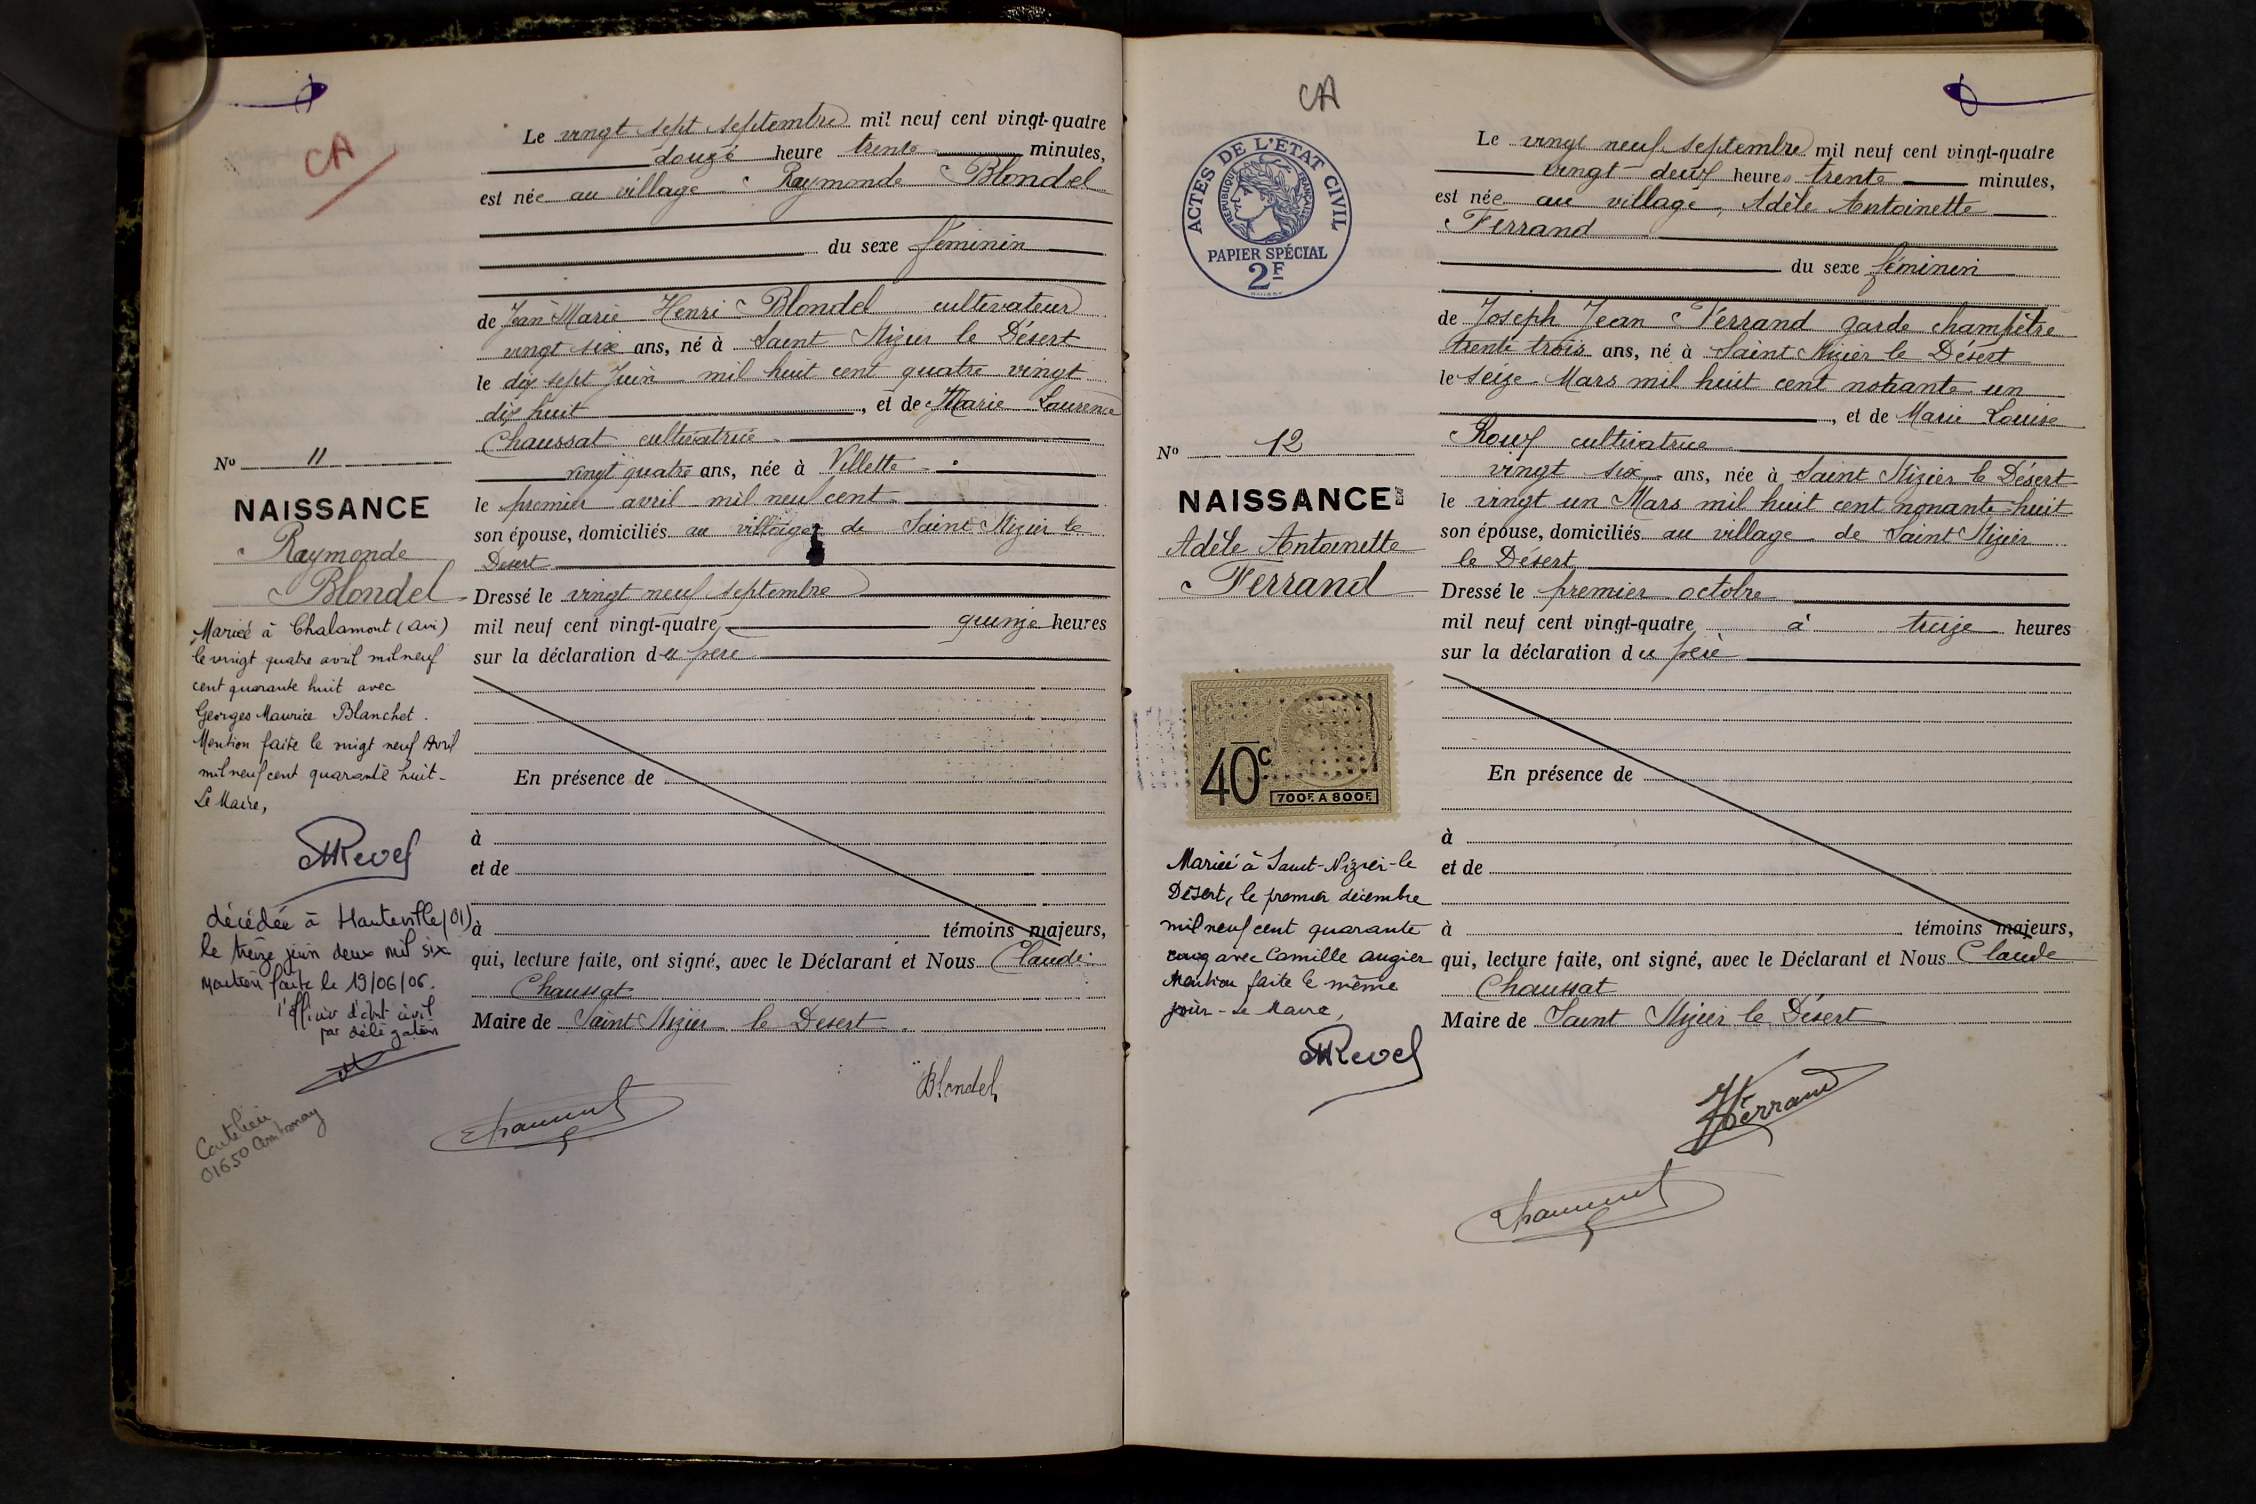 CA
Le vingt sept septembre mil neuf cent vingt-quatre
douze heure trente minutes,
est née au village Raymonde Blondel
du sexe féminin
de Jean Marie Henri Blondel cultivateur
vingt six ans, né à Saint Nizier le Désert
le dix sept Juin mil huit cent quatre vingt
dix huit, et de Marie Laurence
Chaussat cultivatrice
vingt quatre ans, née à Villette
le premier avril mil neuf cent
son épouse, domiciliés au village de Saint Nizier le
Désert
Dressé le vingt neuf septembre
mil neuf cent vingt-quatre quinze heures
sur la déclaration du père
En présence de
à
et de
à témoins majeurs,
qui, lecture faite, ont signé, avec le Déclarant et Nous Claude
Chaussat
Maire de Saint Nizier le Désert
Blondel
No 11
NAISSANCE
Raymonde
Blondel
Mariée à Chalamont (Ain)
le vingt quatre avril mil neuf
cent quarante huit avec
Georges Maurice Blanchet.
Mention faite le vingt neuf Avril
mil neuf cent quarante huit-
Le Maire,
Revel
décédée à Hauteville (01)
le treize juin deux mil six
Mention faite le 19/06/06.
l'officier d'état civil
par délégation
01650
CA
ACTES DE L'ÉTAT CIVIL
RÉPUBLIQUE FRANÇAISE
PAPIER SPÉCIAL
2F
Le vingt neuf septembre mil neuf cent vingt-quatre
vingt-deux heures trente minutes,
est née au village, Adèle Antoinette
Ferrand
du sexe féminin
de Joseph Jean Ferrand garde champêtre
trente trois ans, né à Saint Nizier le Désert
le seize Mars mil huit cent nonante un
, et de Marie Louise
Roux cultivatrice
vingt six ans, née à Saint Nizier le Désert
le vingt un Mars mil huit cent nonante huit
son épouse, domiciliés au village de Saint Nizier
le Désert
Dressé le premier octobre
mil neuf cent vingt-quatre à treize heures
sur la déclaration du père
En présence de
à
et de
à témoins majeurs,
qui, lecture faite, ont signé, avec le Déclarant et Nous Claude
Chaussat
Maire de Saint Nizier le Désert
Ferrand
No 12
NAISSANCE
Adèle Antoinette
Ferrand
40c
700F. A 800F.
Mariée à Saint-Nizier-le
Désert, le premier décembre
mil neuf cent quarante
cinq avec Camille Augier
Mention faite le même
jour - Le Maire,
Revel